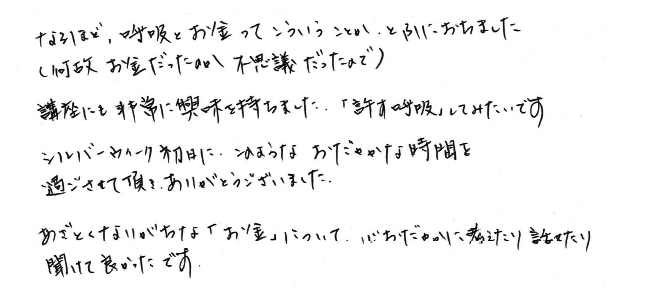 なるほど、呼吸とお金ってこういうことか、とふにおちました
(何故 お金だったのか 不思議だったので)
講座にも非常に興味を持ちました。「許す呼吸」してみたいです
シルバーウィーク初日に、このような おだやかな時間を
過ごさせて頂き、ありがとうございました。
あざとくなりがちな「お金」について、心おだやかに考えたり 話せたり
聞けて良かったです。